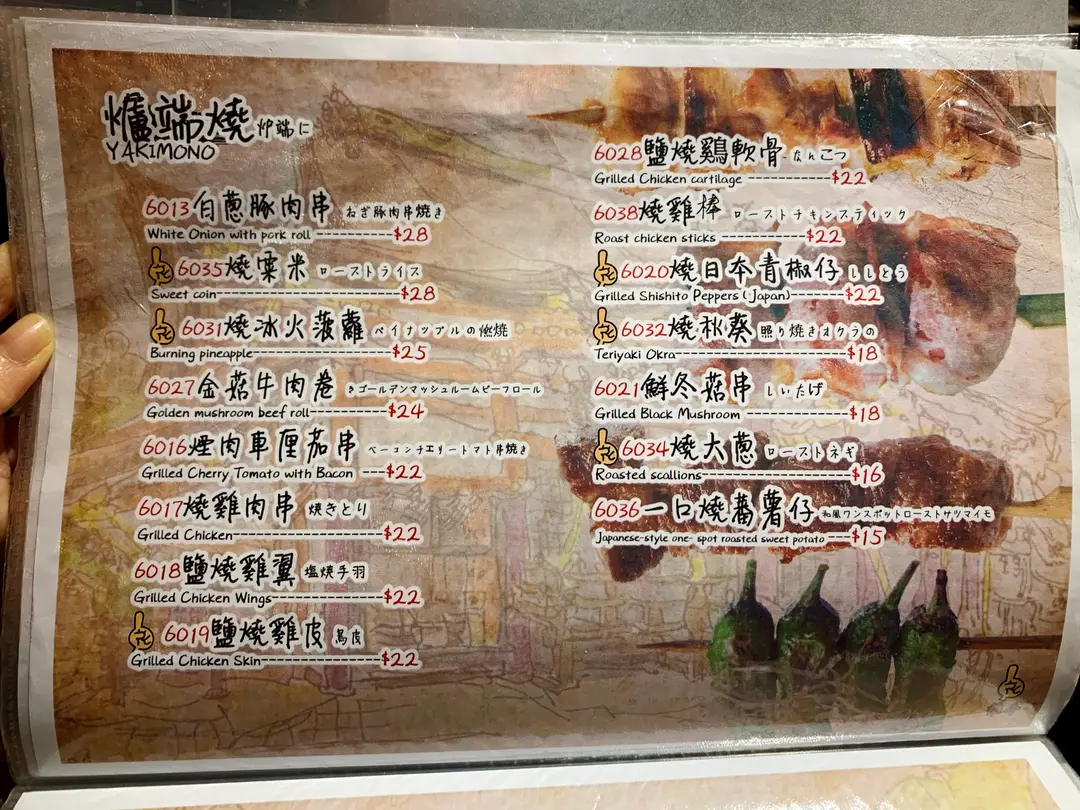 爐端燒 炉端に
YAKIMONO
6013白蔥豚肉串 ねぎ豚肉串焼き
White Onion with pork roll ----------$28
6035燒粟米 ローストライス
Sweet coin------------------------$28
6031燒冰火菠蘿 ペイナップルの燃焼
Burning pineapple------------------$25
6027金菇牛肉卷 きゴールデンマッシュルームビーフロール
Golden mushroom beef roll----------$24
6016煙肉車厘茄串 ベーコンチエリートマト串焼き
Grilled Cherry Tomato with Bacon ---$22
6017燒雞肉串 焼きとり
Grilled Chicken--------------------$22
6018鹽燒雞翼 塩焼手羽
Grilled Chicken Wings---------------$22
6019鹽燒雞皮 鳥皮
Grilled Chicken Skin----------------$22
6028鹽燒鷄軟骨 なんこつ
Grilled Chicken cartilage -----------$22
6038燒雞棒 ローストチキンスティック
Roast chicken sticks -----------$22
6020燒日本青椒仔 ししとう
Grilled Shishito Peppers (Japan)-------$22
6032燒秋葵 照り焼きオクラの
Teriyaki Okra----------------------$18
6021鮮冬菇串 しいたげ
Grilled Black Mushroom --------------$18
6034燒大蔥 ローストネギ
Roasted scallions-------------------$16
6036一口燒蕃薯仔 和風ワンスポットローストサツマイモ
Japanese-style one- spot roasted sweet potato ---$15